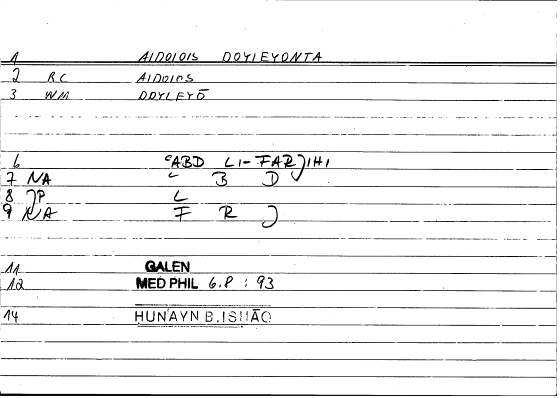 1 AIDOIOIS DOYLEYONTA
2 RC AIDOIOS
3 WM DOYLEYŌ
6 ʿABD LI-FARJIHI
7 NA ʿ B D
8 JP L
9 NA F R J
11 GALEN
12 MED PHIL 6.8 : 93
14 ḤUNAYN B. ISḤĀQ